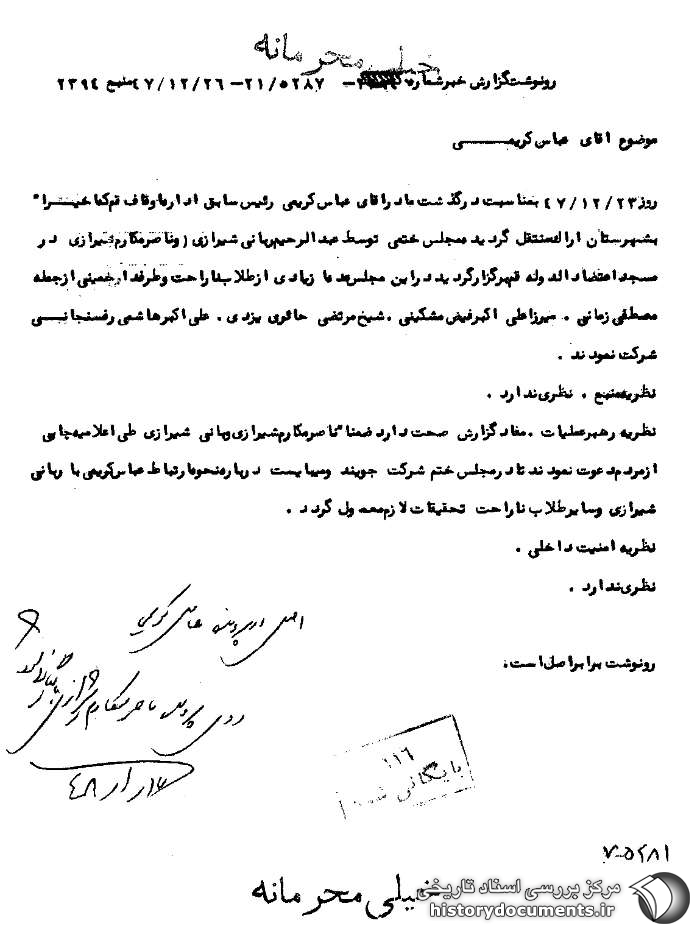 خیلی محرمانه
رونوشت گزارش خبر شماره ۲۱/۵۲۸۷ - ۴۷/۱۲/۲۶ منبع ۲۳۹۴
موضوع اقای عباس کریمی
روز ۴۷/۱۲/۲۳ بمناسبت درگذشت مادر اقای عباس کریمی رئیس سابق اداره اوقاف قم که اخیرا"
بشهرستان اراک منتقل گردیده مجلس ختمی توسط عبدالرحیم ربانی شیرازی و ناصر مکارم شیرازی در
مسجد اعتضادالدوله قم برگزار گردید در این مجلس عده زیادی از طلاب ناراحت و طرفدار خمینی از جمله
مصطفی زمانی . میرزا علی اکبر فیض مشکینی . شیخ مرتضی حائری یزدی . علی اکبر هاشمی رفسنجانی
شرکت نمودند .
نظریه منبع . نظری ندارد .
نظریه رهبر عملیات . مفاد گزارش صحت دارد ضمنا" ناصر مکارم شیرازی و ربانی شیرازی طی اعلامیه چاپی
از مردم دعوت نمودند تا در مجلس ختم شرکت جویند و میبایست درباره نحوه ارتباط عباس کریمی با ربانی
شیرازی و سایر طلاب ناراحت تحقیقات لازم معمول گردد .
نظریه امنیت داخلی .
نظری ندارد .
اصل در پرونده عباس کریمی
رونوشت برابر اصل است.
روی پرونده ناصر مکارم شیرازی
۱۱۶
بایگانی شد
۷-۵۲۸۱
خیلی محرمانه
مرکز بررسی اسناد تاریخی
historydocuments.ir